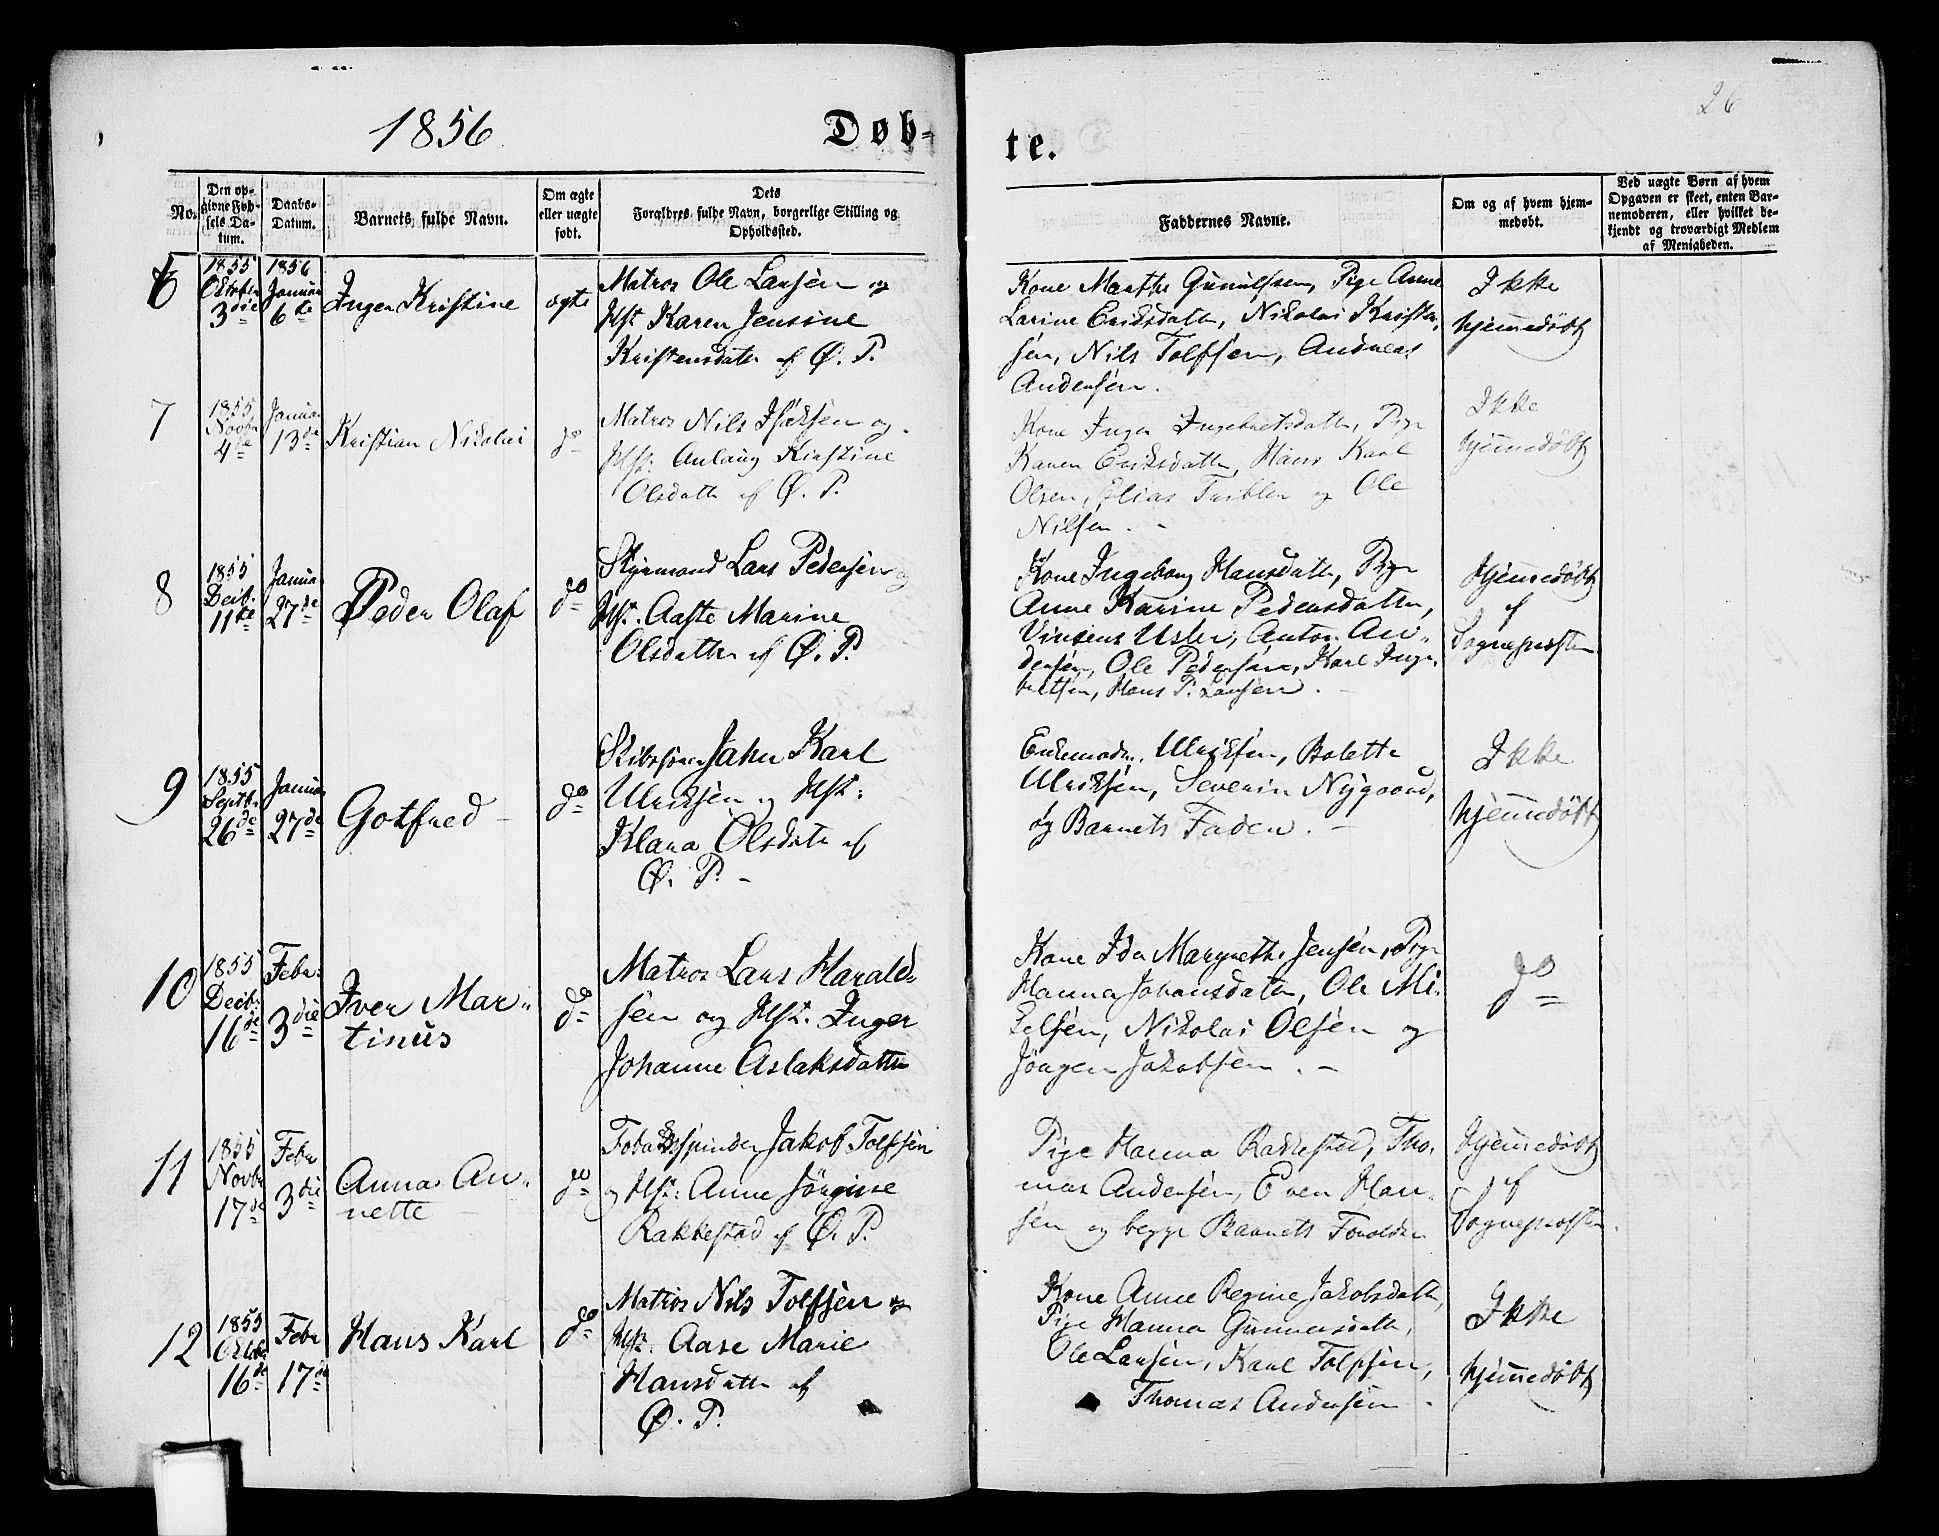 1856
Døb-
te.
26
No.
Den op-
givne Fød-
sels Da-
tum.
Daabs-
Datum.
Barnets fulde Navn.
Om ægte
eller uægte
født.
Dets
Forældres fulde Navn, borgerlige Stilling og
Opholdssted.
Faddernes Navne.
Om og af hvem hjem-
medøbt.
Ved uægte Børn af hvem
Opgaven er skeet, enten Bar-
nemoderen, eller hvilket be-
kjendt og troværdigt Medlem
af Menigheden.
6
1855
Oktober
3die
1856
Januar
6te
Inger Kristine
ægte
Matros Ole Larsen og
Hst. Karen Jensine
Kristensdatr af Ø. P.
Kone Marthe Gunulfsen, Pige Anne
Larine Eriksdattr, Nikolai Kristen-
sen, Nils Tolfsen, Andreas
Andersen.
Ikke
hjemmedøbt
7
1855
Novbr
4de
Januar
13de
Kristian Nikolai
do
Matros Nils Isaksen og
Hst: Anlaug Kirstine
Olsdattr af Ø. P.
Kone Inger Ingebretsdattr, Pige
Karen Eriksdattr, Hans Karl
Olsen, Elias og Ole
Nilsen.
Ikke
hjemmedøbt
8
1855
Decb.
11te
Januar
27de
Peder Olaf
do
Styrmand Lars Pedersen og
Hst. Aaste Marine
Olsdatter af Ø. P.
Kone Ingeborg Hansdattr, Pige
Anne Karine Pedersdatter,
Vinsens Usler, Anton An-
dersen, Ole Pedersen, Karl Inge-
bretsen, Hans P. Larsen.
Hjemmedøbt
af
Sogneprosten
9
1855
Septb.
26de
Januar
27de
Gotfred
do
Skibsfører Jahn Karl
Ulriksen og Hst:
Klara Olsdatr af
Ø. P.
Enkemad. Ulriksen, Bolette
Ulriksen, Severin Nygaard,
og Barnets Fader.
Ikke
hjemmedøbt
10
1855
Decb.
16de
Febr.
3die
Iver Mar-
tinus
do
Matros Lars Harald-
sen og Hst. Inger
Johanne Aslaksdatter
Kone Ida Margrethe Jensen, Pige
Hanna Johansdattr, Ole Mi-
kelsen, Nikolai Olsen og
Jörgen Jakobsen.
do
11
1855
Novbr
17de
Febr
3die
Anna An-
nette
do
Tobaksspinder Jakob Tolfsen
og Hst: Anne Jörgine
Rakkestad af Ø. P.
Pige Hanna Rakkestad, Tho-
mas Andersen, Even Han-
sen og begge Barnets Forældre
Hjemmedøbt
af
Sogneprosten.
12
1855
Oktbr
16de
Febr
17de
Hans Karl
do
Matros Nils Tolfsen og
Hst. Aase Marie
Hansdattr af
Ø. P.
Kone Anne Regine Jakobsdattr,
Pige Hanna Gunnersdattr,
Ole Larsen, Karl Tolfsen,
Thomas Andersen.
Ikke
hjemmedøbt